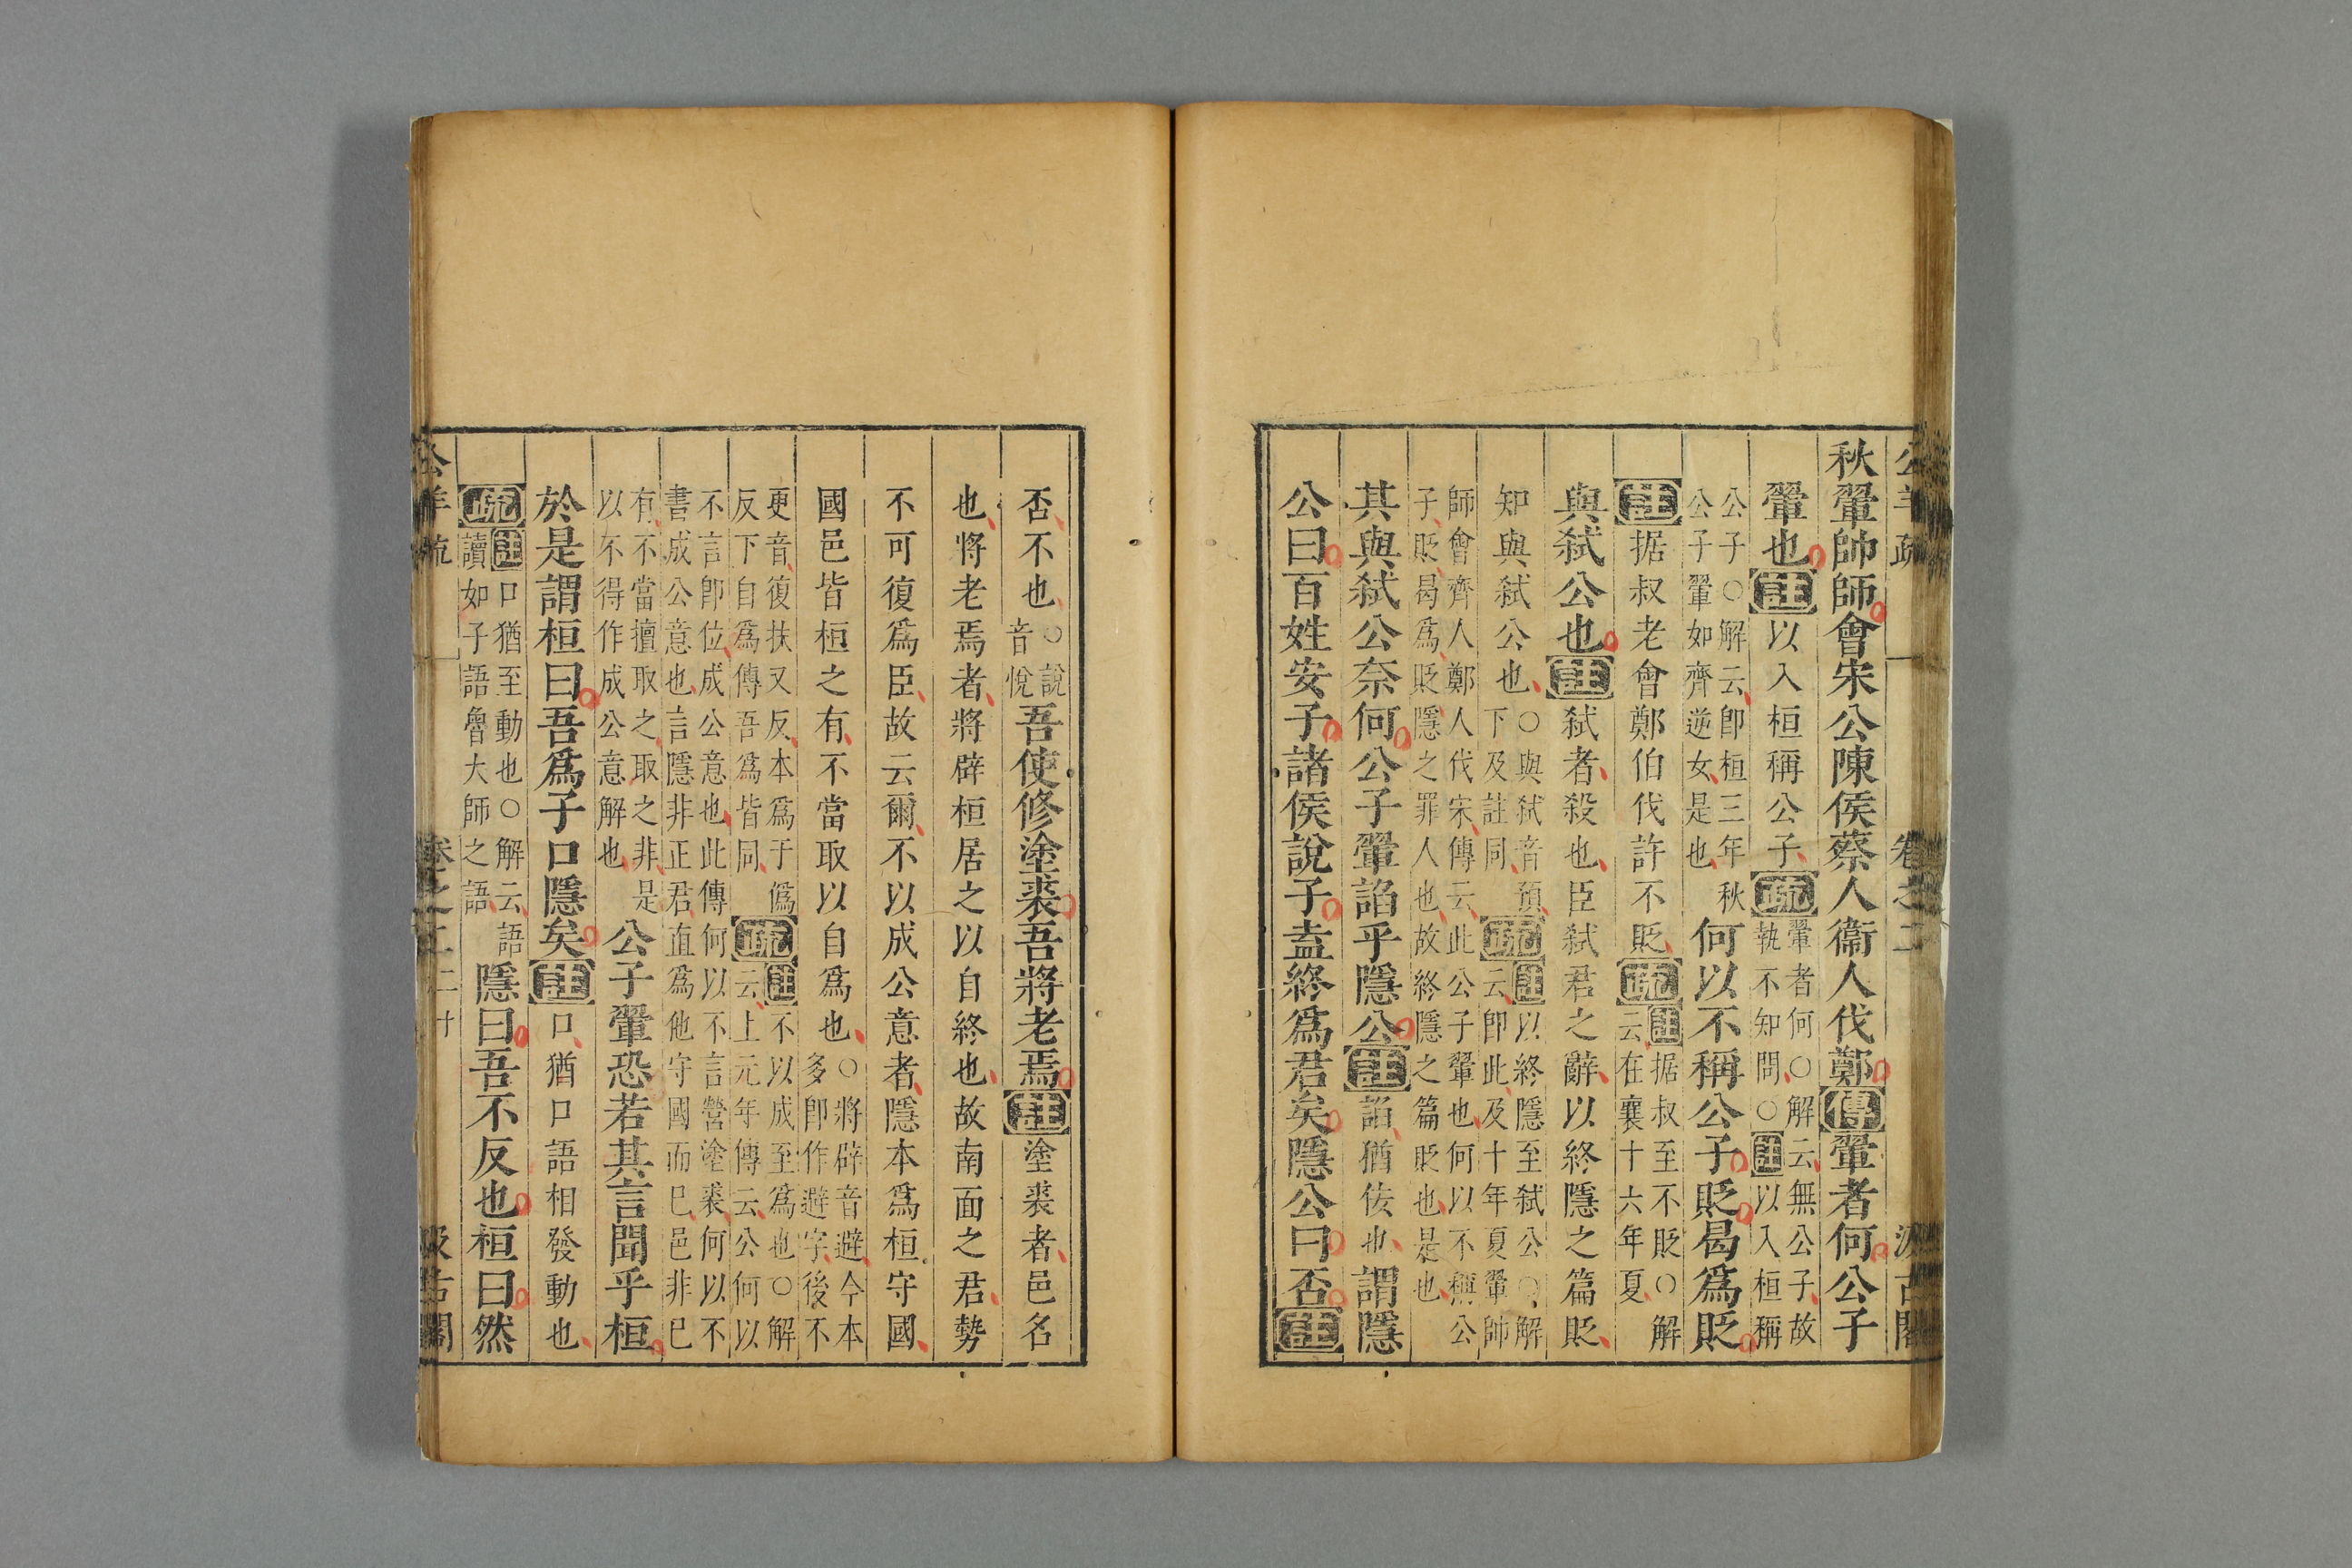 公羊疏 卷之二 汲古閣
秋翬帥師會宋公陳侯蔡人衞人伐鄭傳翬者何公子
翬也註以入桓稱公子疏翬者何○解云無公子故
執不知問○註以入桓稱
公子○解云即桓三年秋
公子翬如齊逆女是也何以不稱公子貶曷爲貶
註据叔老會鄭伯伐許不貶疏註据叔至不貶○解
云在襄十六年夏
與弑公也註弑者殺也臣弑君之辭以終隱之篇貶
知與弑公也○與弑音預
下及註同疏註以終隱至弑公○解
云即此及十年夏翬帥
師會齊人鄭人伐宋傳云此公子翬也何以不稱公
子貶曷爲貶隱之罪人也故終隱之篇貶也是也
其與弑公奈何公子翬諂乎隱公註諂猶佞也謂隱
公曰百姓安子諸侯說子盍終爲君矣隱公曰否註
否不也○說
音悅吾使修塗裘吾將老焉註塗裘者邑名
也將老焉者將辟桓居之以自終也故南面之君勢
不可復爲臣故云爾不以成公意者隱本爲桓守國
國邑皆桓之有不當取以自爲也○將辟音避今本
多即作避字後不
更音復扶又反本爲于僞
反下自爲傳吾爲皆同疏註不以成至爲也○解
云上元年傳云公何以
不言即位成公意也此傳何以不言營塗裘何以不
書成公意也言隱非正君直爲他守國而已邑非已
有不當擅取之取之非是
以不得作成公意解也公子翬恐若其言聞乎桓
於是謂桓曰吾爲子口隱矣註口猶口語相發動也
疏註口猶至動也○解云語
讀如子語魯大師之語隱曰吾不反也桓曰然
公羊疏 卷之二 二十 汲古閣